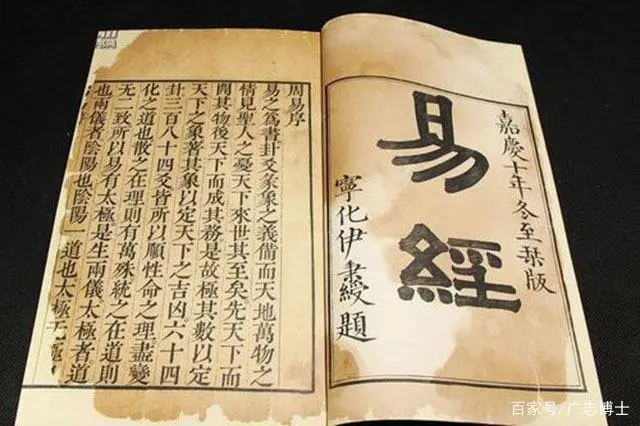 嘉慶十年冬至栞版
易經
寧化伊秉綬題
周易序
易之爲書卦爻彖象之義備而天地萬物之
情見聖人之憂天下來世其至矣先天下而
開其物後天下而成其務是故極其數以定
天下之象著其象以定天下之吉凶六十四
卦三百八十四爻皆所以順性命之理盡變
化之道也散之在理則有萬殊統之在道則
無二致所以易有太極是生兩儀太極者道
也兩儀者陰陽也陰陽一道也太極无極
百家号/广志博士